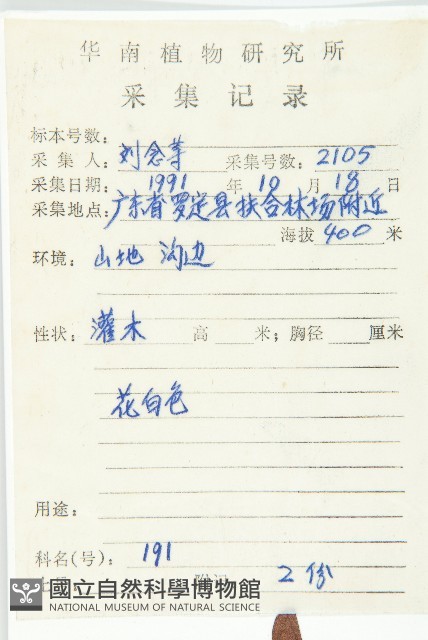 华南植物研究所
采集记录
标本号数：
采集人：刘念等 采集号数：2105
采集日期：1991年10月18日
采集地点：广东省罗定县扶合林场附近
海拔400米
环境：山地 沟边
性状：灌木 高 米；胸径 厘米
花白色
用途：
科名(号)：191
2份
國立自然科學博物館
NATIONAL MUSEUM OF NATURAL SCIENCE